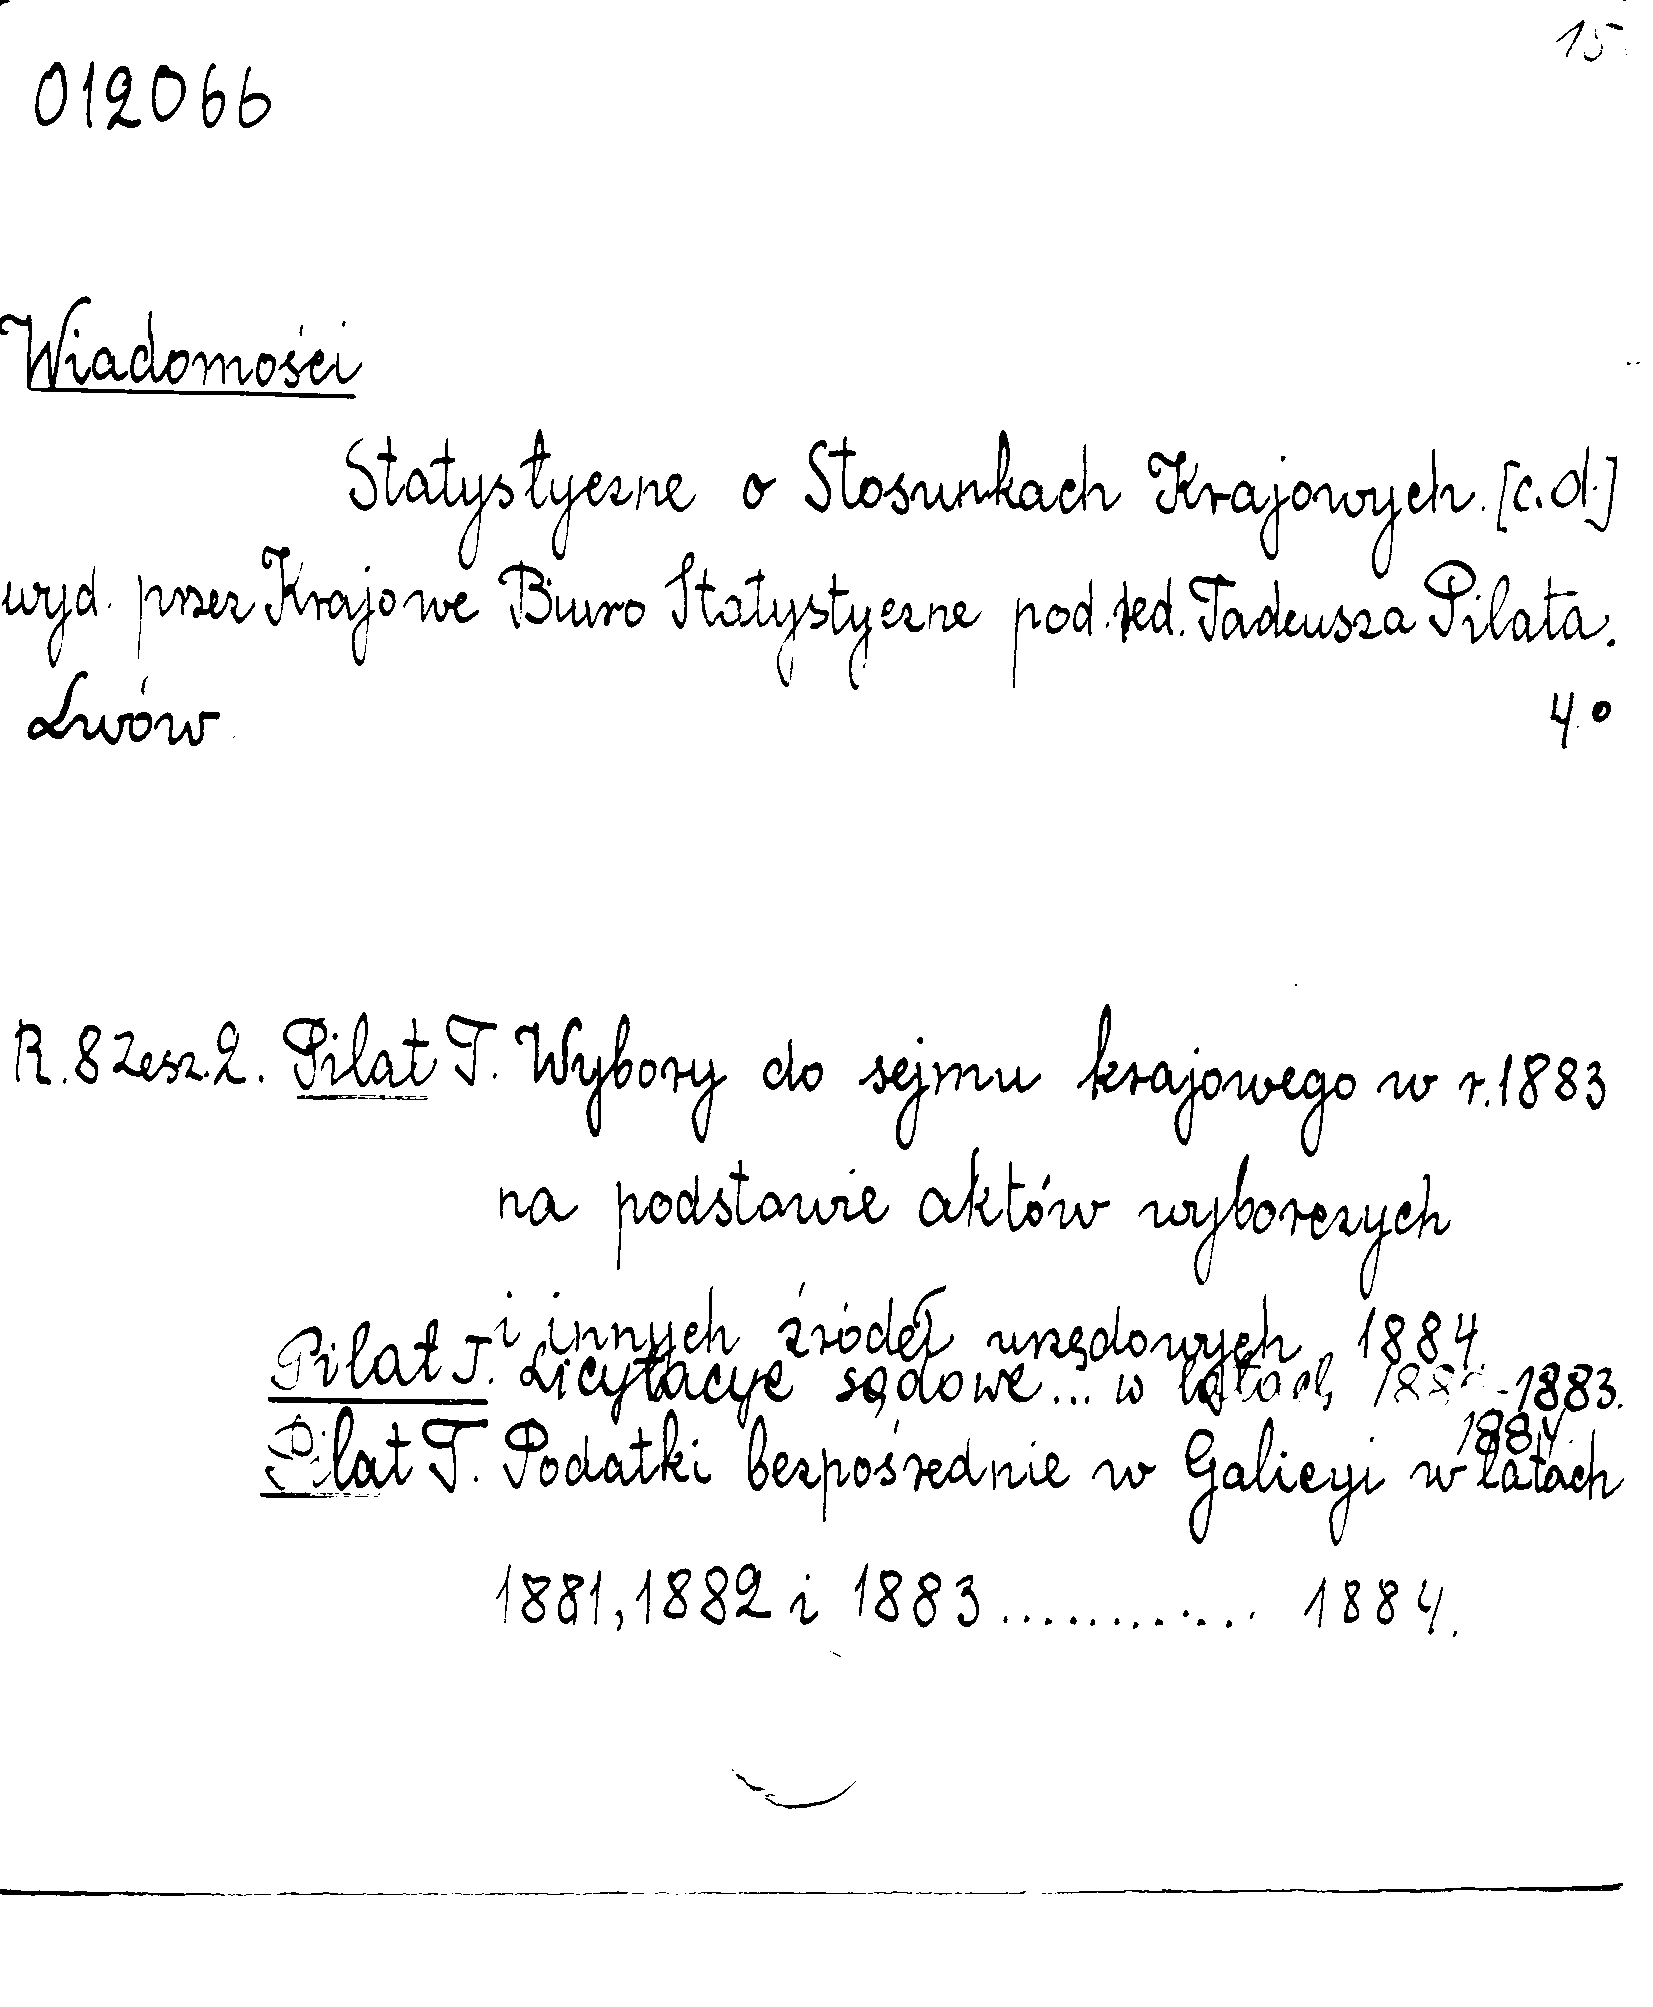 15
012066
Wiadomości
Statystyczne o Stosunkach Krajowych. [c.d.]
wyd. przez Krajowe Biuro Statystyczne pod. red. Tadeusza Pilata.
Lwów 4°
R. 8 Zesz. 2. Pilat T. Wybory do sejmu krajowego w r. 1883
na podstawie aktów wyborczych
i innych źródeł urzędowych 1884
Pilat T. Licytacye sądowe... w latach -1883.
1884
Pilat T. Podatki bezpośrednie w Galicyi w latach
1881, 1882 i 1883............ 1884.